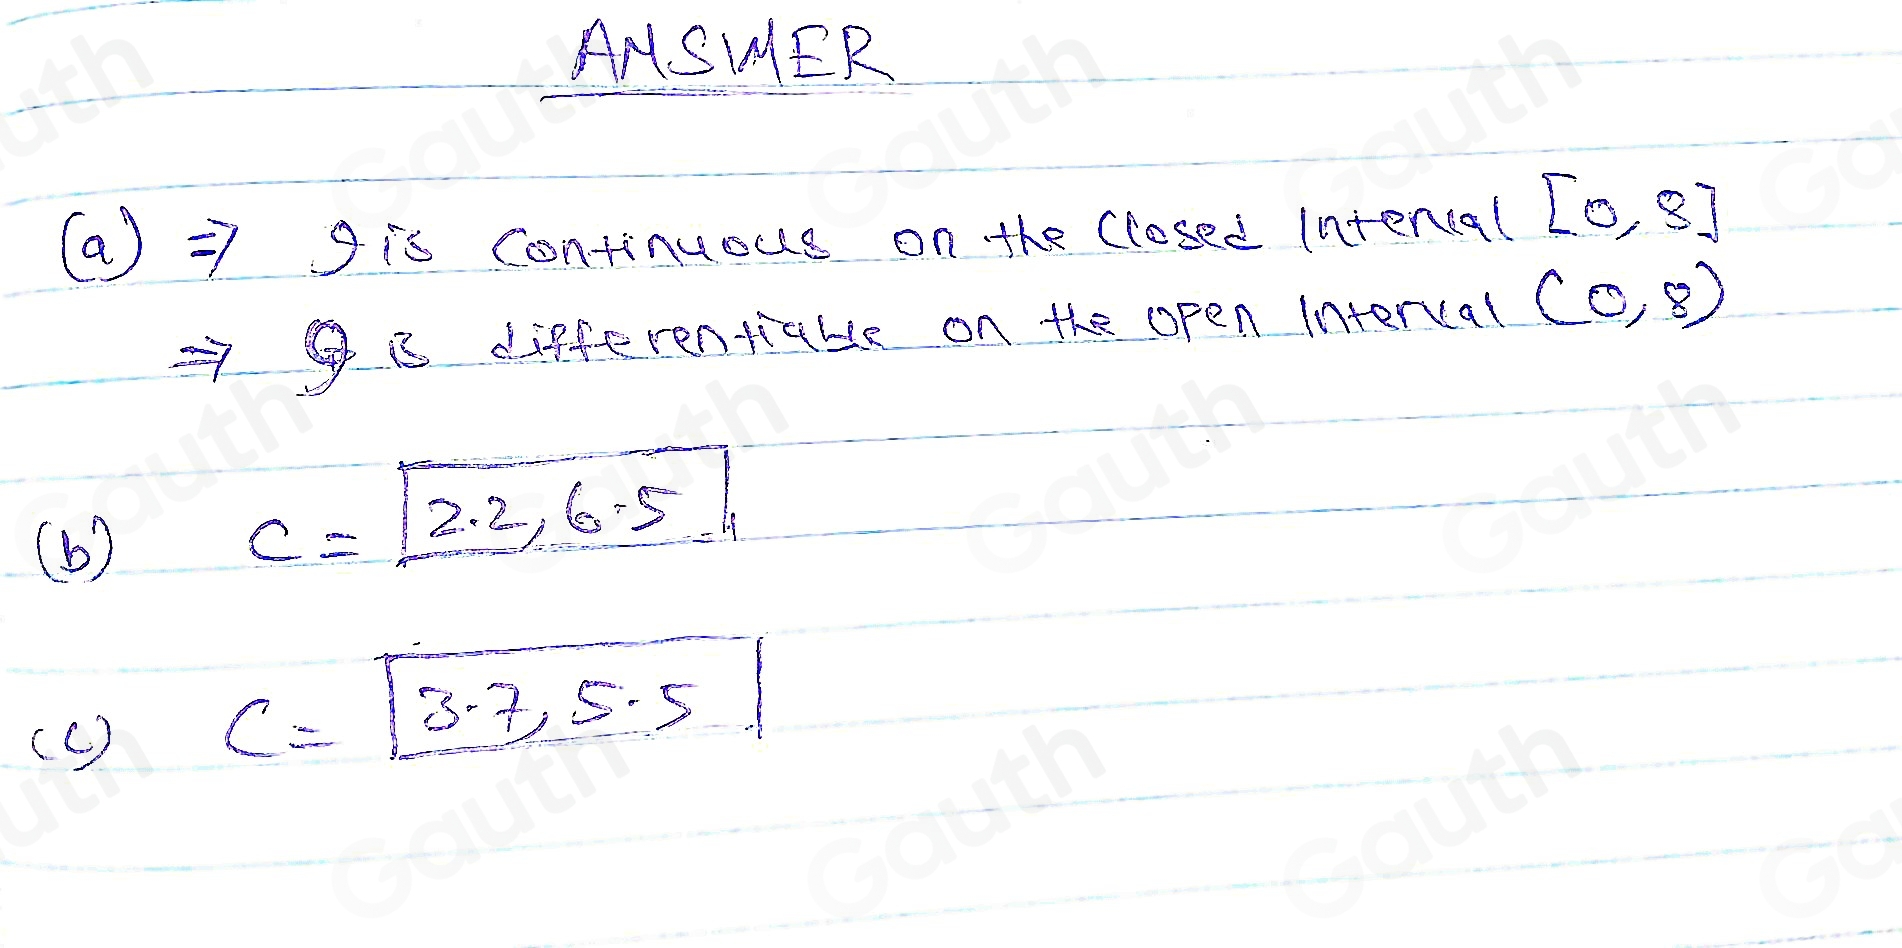 ANSWER
(a) ⇒ g is continuous on the closed interval [0, 8]
⇒ g is differentiable on the open interval (0, 8)
(b) C = 2.2, 6.5
(c) C = 3.7, 5.5
Gauth